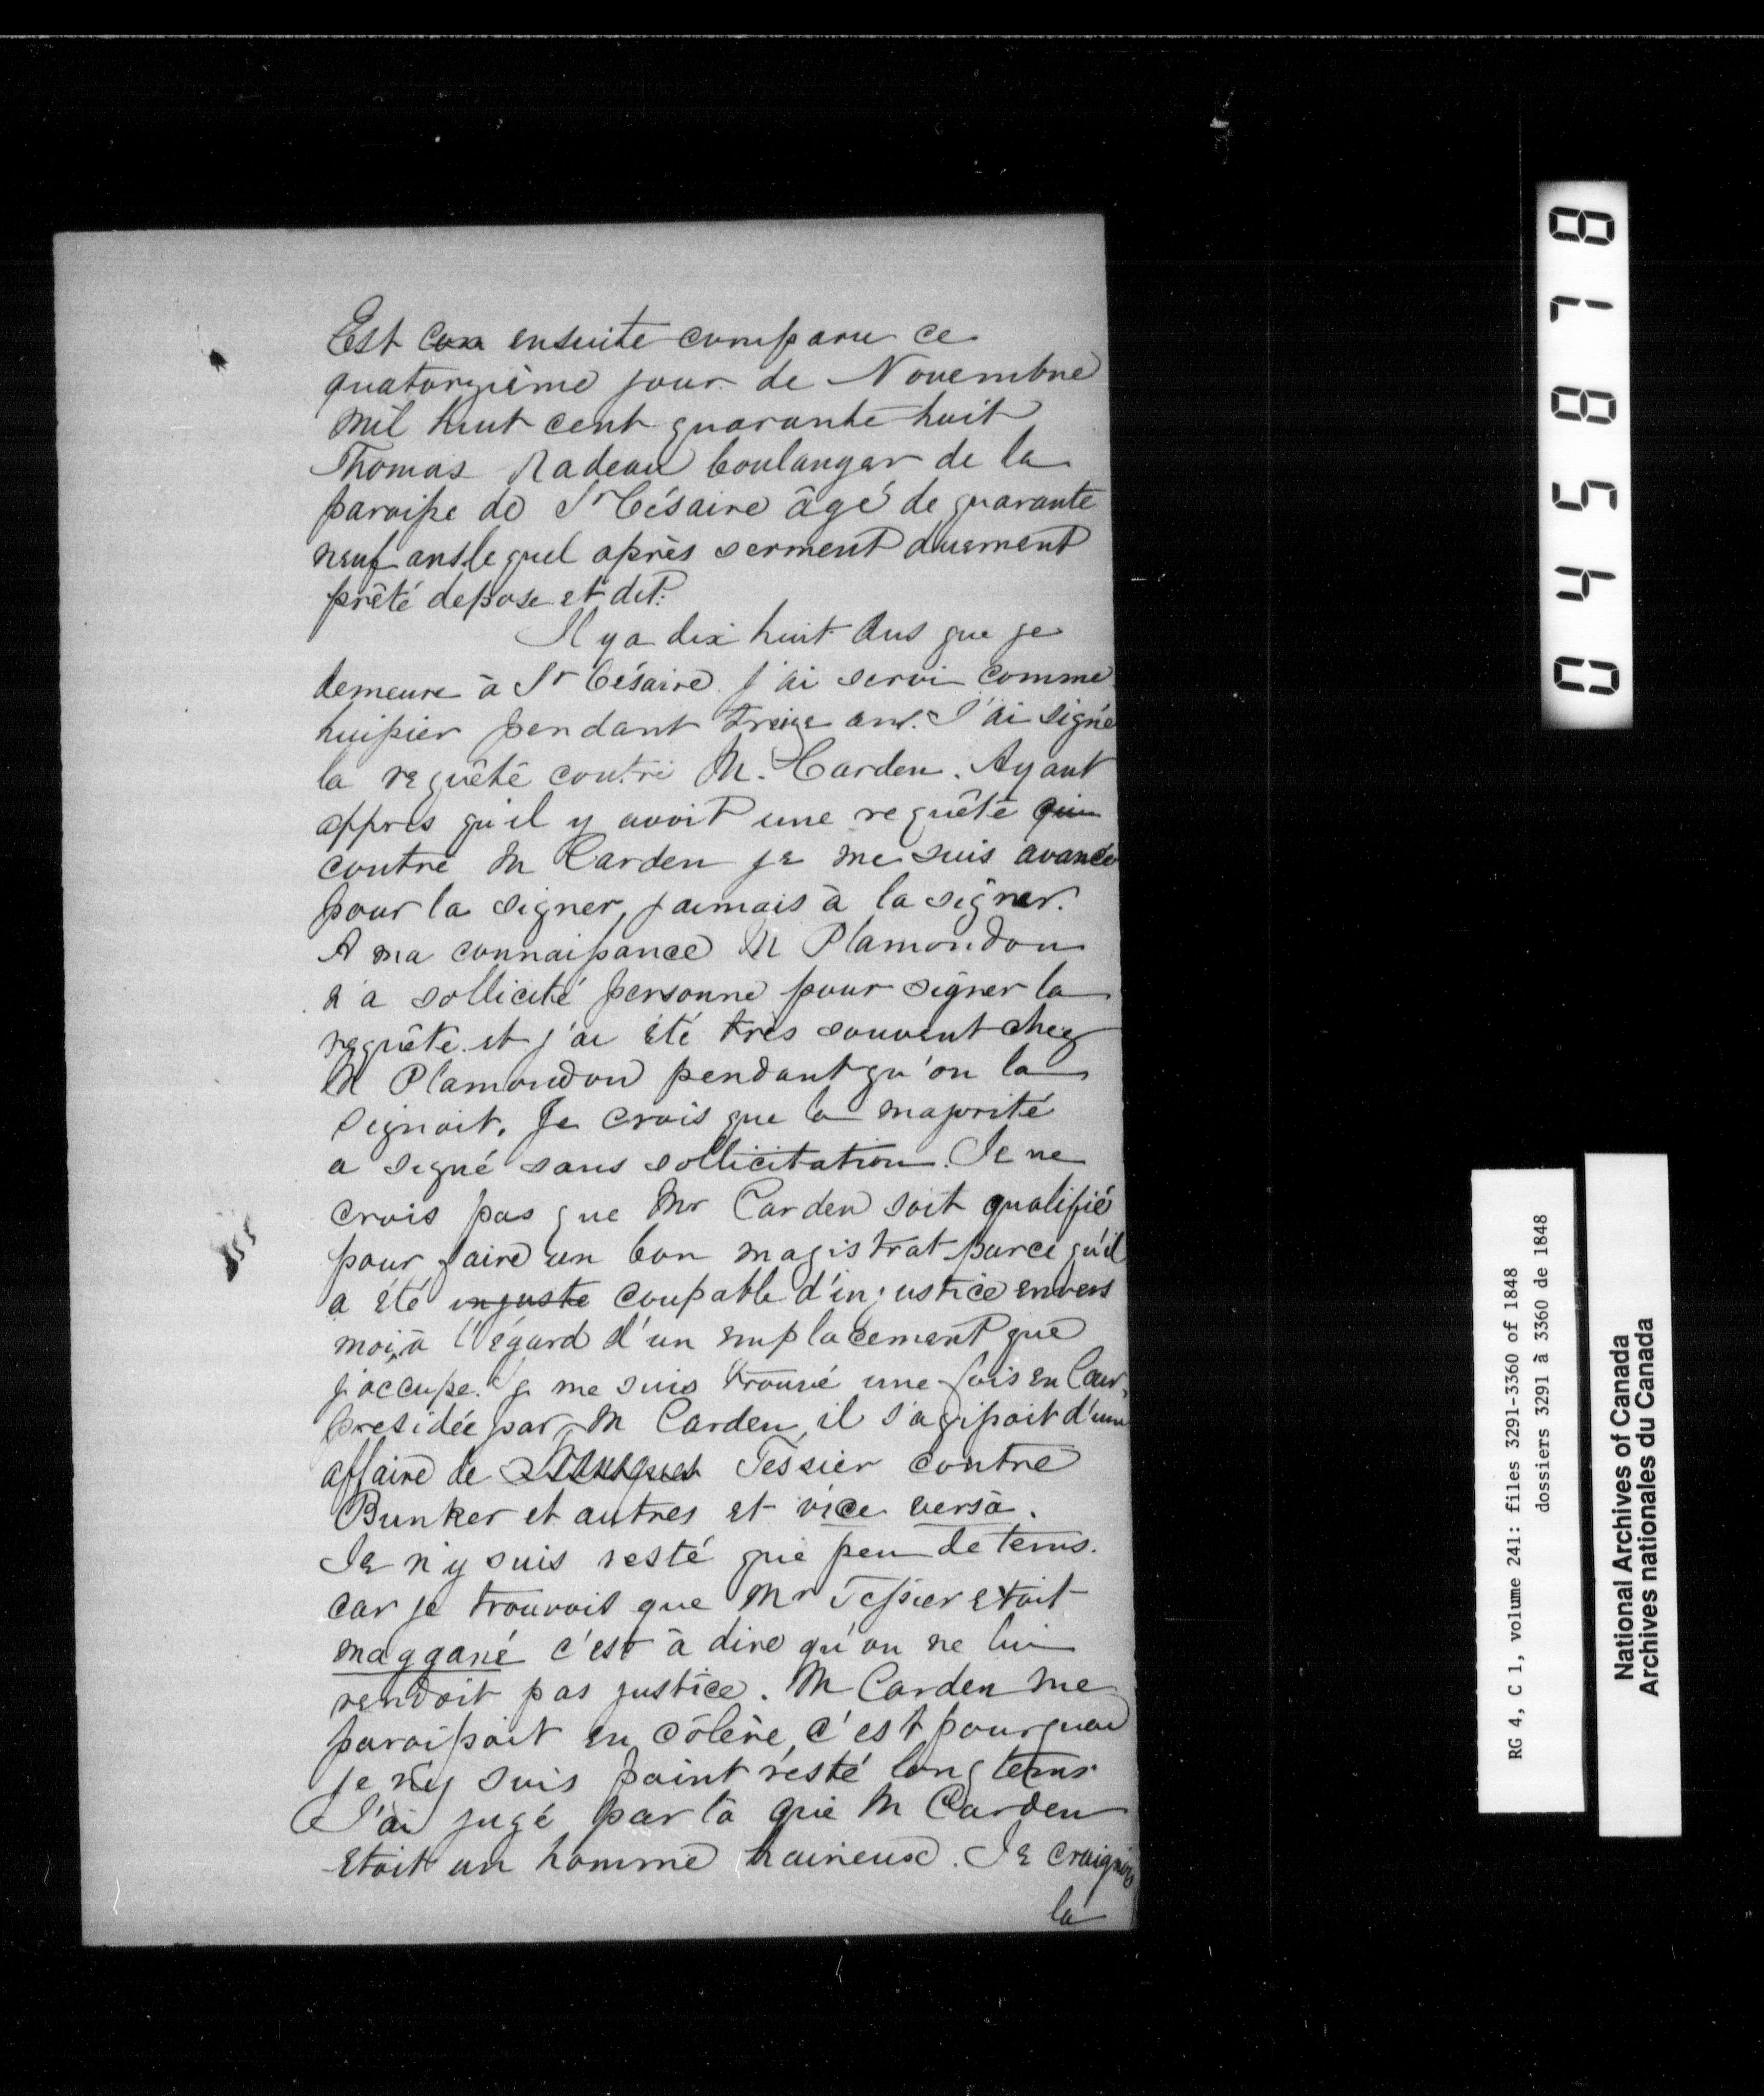 Est con ensuite comparu ce
quatorzième jour de Novembre
mil huit cent quarante huit
Thomas Nadeau boulanger de la
paroisse de St Césaire âgé de quarante
neuf ans lequel après serment duement
prêté depose et dit:
Il y a dix huit ans que je
demeure à St Césaire. j'ai servi comme
huissier pendant treize ans. J'ai signé
la requête contre M. Carden. Ayant
appris qu'il y avoit une requête qui
contre M Carden je me suis avancé
pour la signer, j'aimais à la signer.
A ma connaissance M Plamondon
n'a sollicité personne pour signer la
requête et j'ai été très souvent chez
M Plamondon pendant qu'on la
signoit. Je crois que la majorité
a signé sans sollicitation. Je ne
crois pas que Mr Carden soit qualifié
pour faire un bon magistrat parce qu'il
a été injuste coupable d'injustice envers
moi, à l'égard d'un emplacement que
j'occupe. je me suis trouvé une fois en Cour,
presidée par M Carden, il s'agissoit d'une
affaire de Tessier contre
Bunker et autres et vice versà.
Je n'y suis resté que peu de tems.
car je trouvois que Mr Tessier etoit
maggané c'est à dire qu'on ne lui
rendoit pas justice. M Carden me
paroissoit en côlère, c'est pourquoi
je n'y suis point resté longtems
J'ai jugé par là que M Carden
etoit un homme haineux. Je craignois
la
045878
RG 4, C 1, volume 241: files 3291-3360 of 1848
dossiers 3291 à 3360 de 1848
National Archives of Canada
Archives nationales du Canada